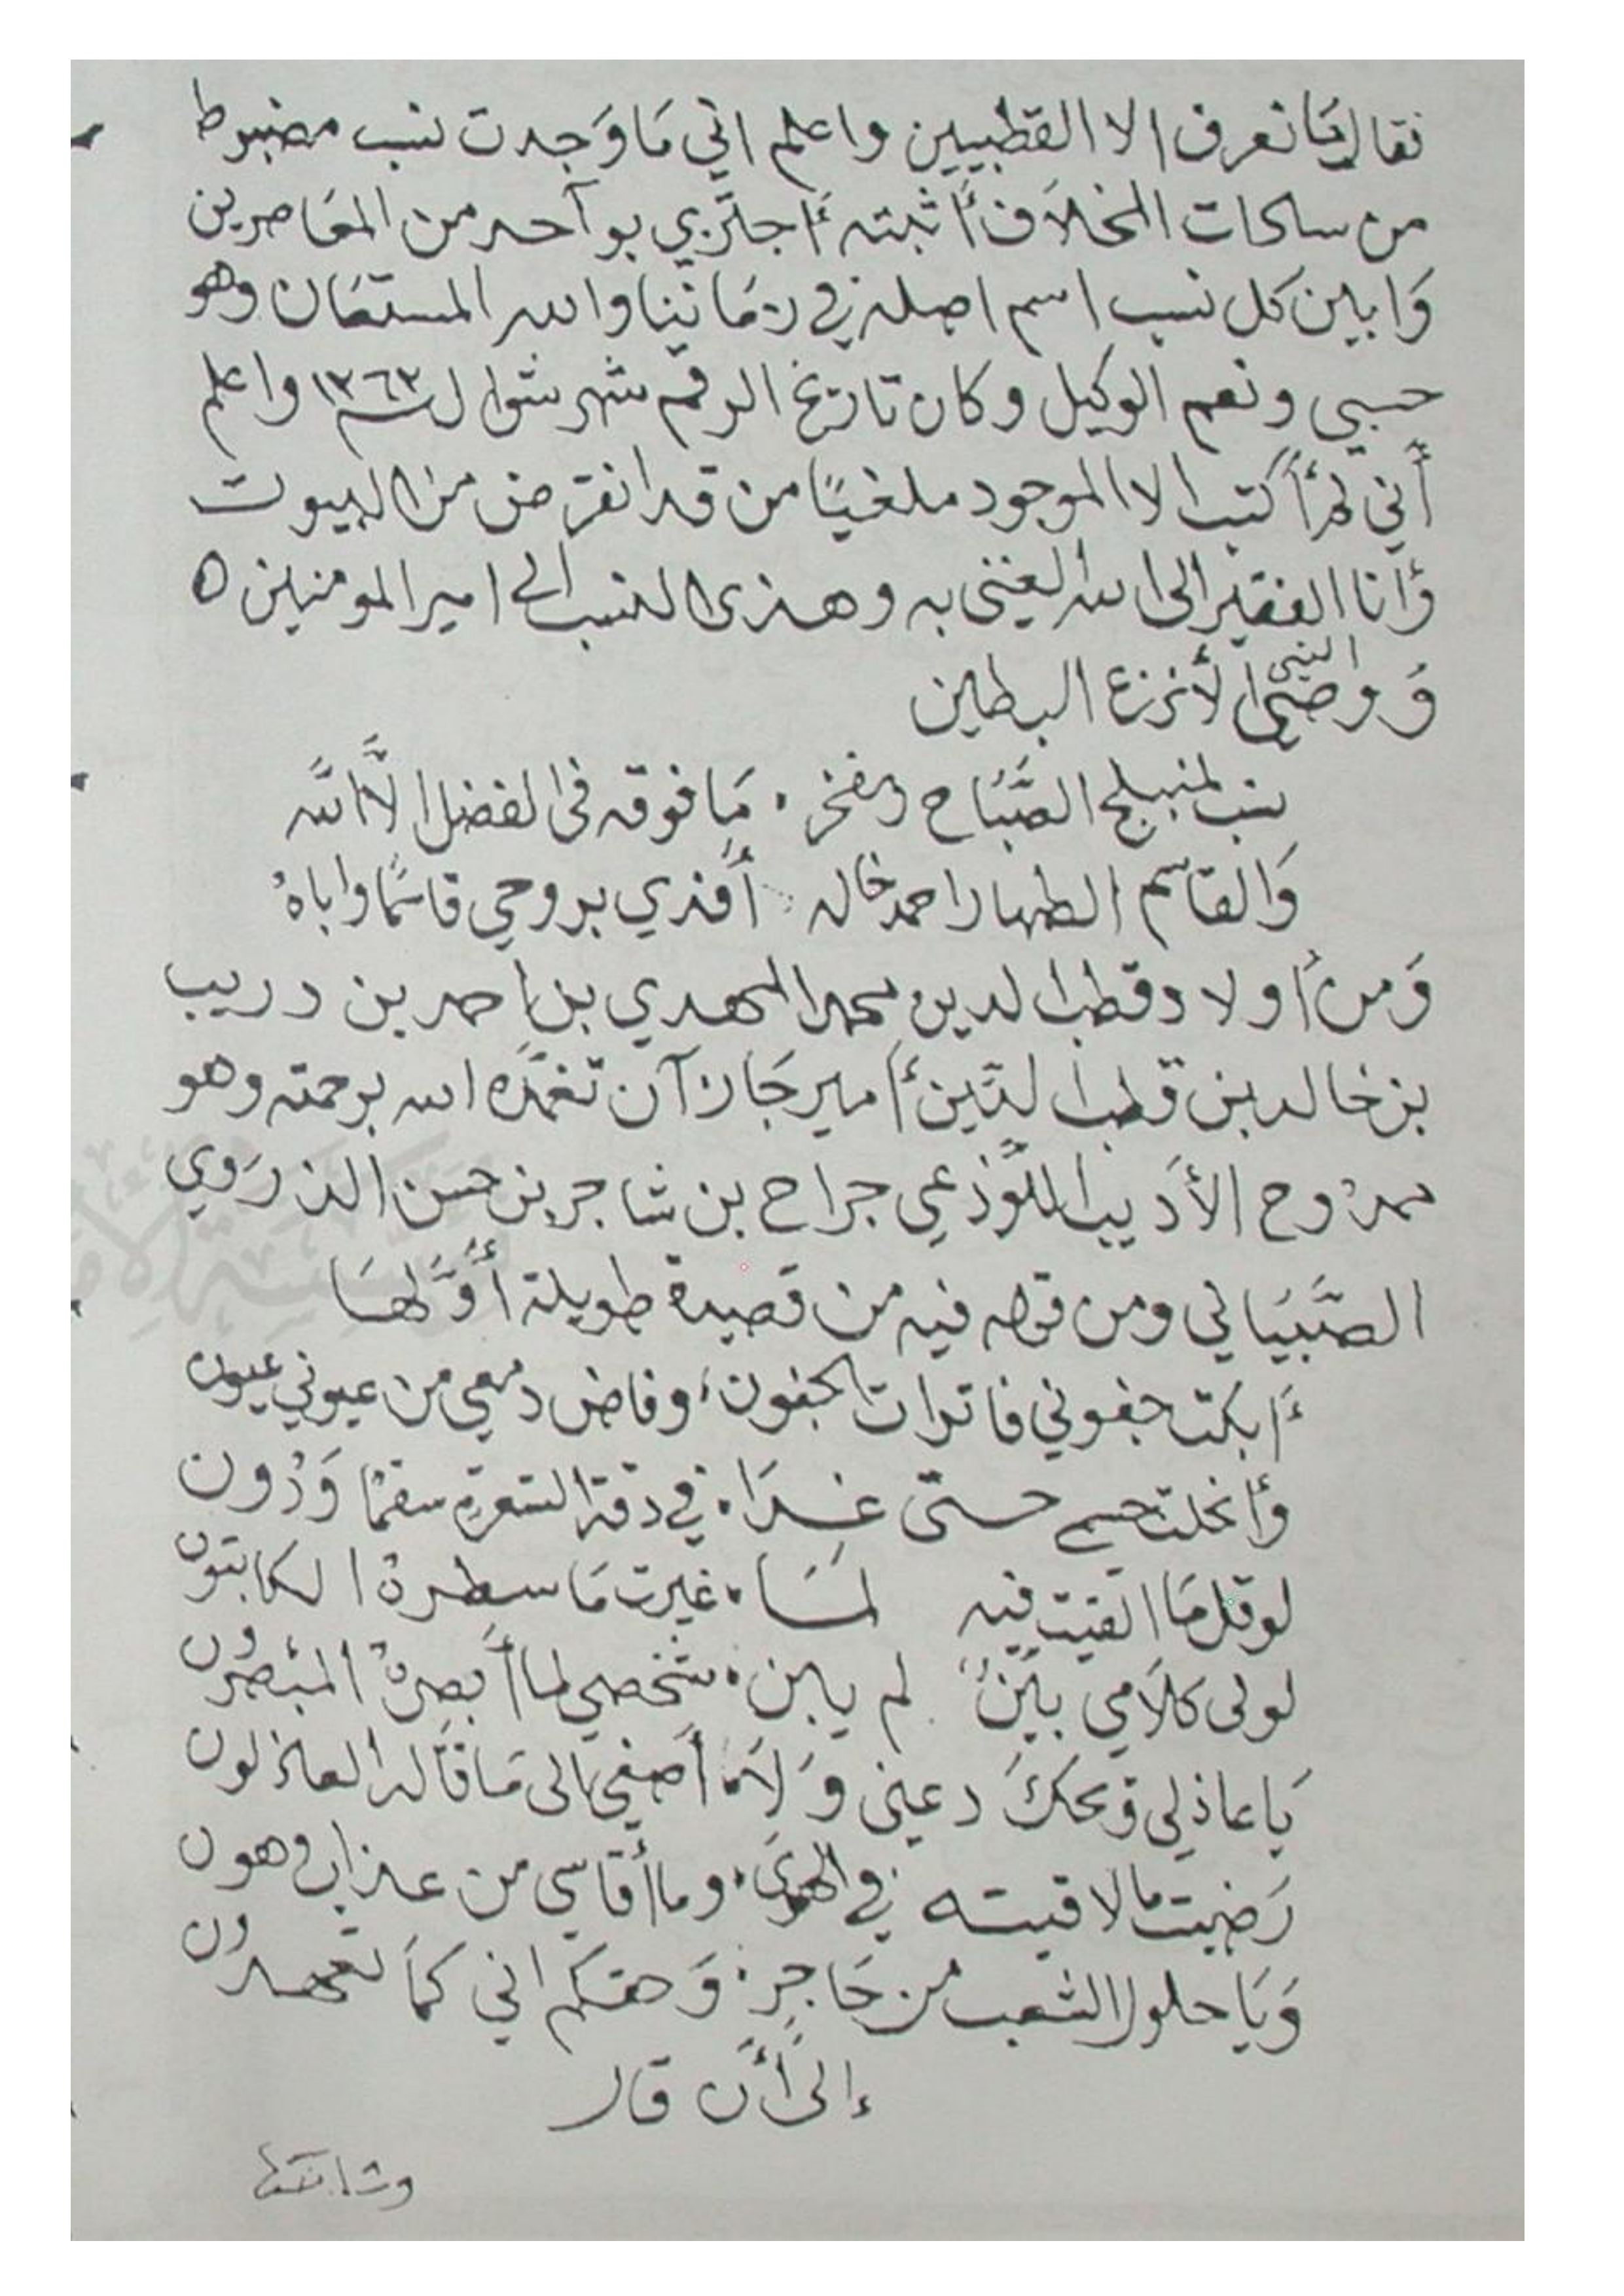 فقال ما نعرف الا القطبيين واعلم اني مَا وَجدت نسب مضبوط
من ساحات المخلاَف أثبته أجتزي بوآحد من المعَاصرين
وَابين كل نسب اسم اصله في زمَاننا والله المستعَان وهو
حسبي ونعم الوكيل وكان تاريخ الرقم شهر شوال سنة ١٣٦٣ واعلم
أني لم أكتب الا الموجود ملغيًا من قد انقرض من البيوت
وأنا الفقير الى الله الغني به وهذى النسب الى امير المومنين ٥
وَوصي النبي الأنزع البطين
نسب لمنبلج الصَّبَاح ومفخر ٠ مَا فوقه في الفضل الاَّ الله
وَالقاسم الطهار احمد خاله أَفدي بروحي قاسمًا واباهُ
وَمن أولاد قطب الدين محمد المهدي بن احمد بن دريب
بن خالد بن قطب الدّين أمير جَازآن تغمّده الله برحمته وهو
ممدوح الأدَيب اللَّوذعي جراح بن شاجر بن حسن الذروي
الصَّبيَاني ومن قوله فيه من قصيدة طويلة أَوَّلهَا
أبكت جفوني فاترات الجفون ، وفاض دمعي من عيوني عيون
وأنحلت جسمي حتى غدَا ٠ في دقة الشعرة سقمًا وَدُون
لو قلمَا القيت فيه لمَسَا ٠ غيرت مَا سطرهُ الكاتبون
لولى كلاَمي بيّنٌ لم يابن ٠ شخصي لما أبصرهُ المبْصرُون
يَا عاذلي ويحكَ دعني وَلاَ ٠ أصغي الى مَا قَاله العاذلون
رَضيت ما لاقيته في الهوىَ ٠ وما أقاسي من عذاب وهون
وَيَا حلول الشعب من حَاجرٍ ٠ وَحقكم اني كمَا تعهدُون
إلى أَن قال